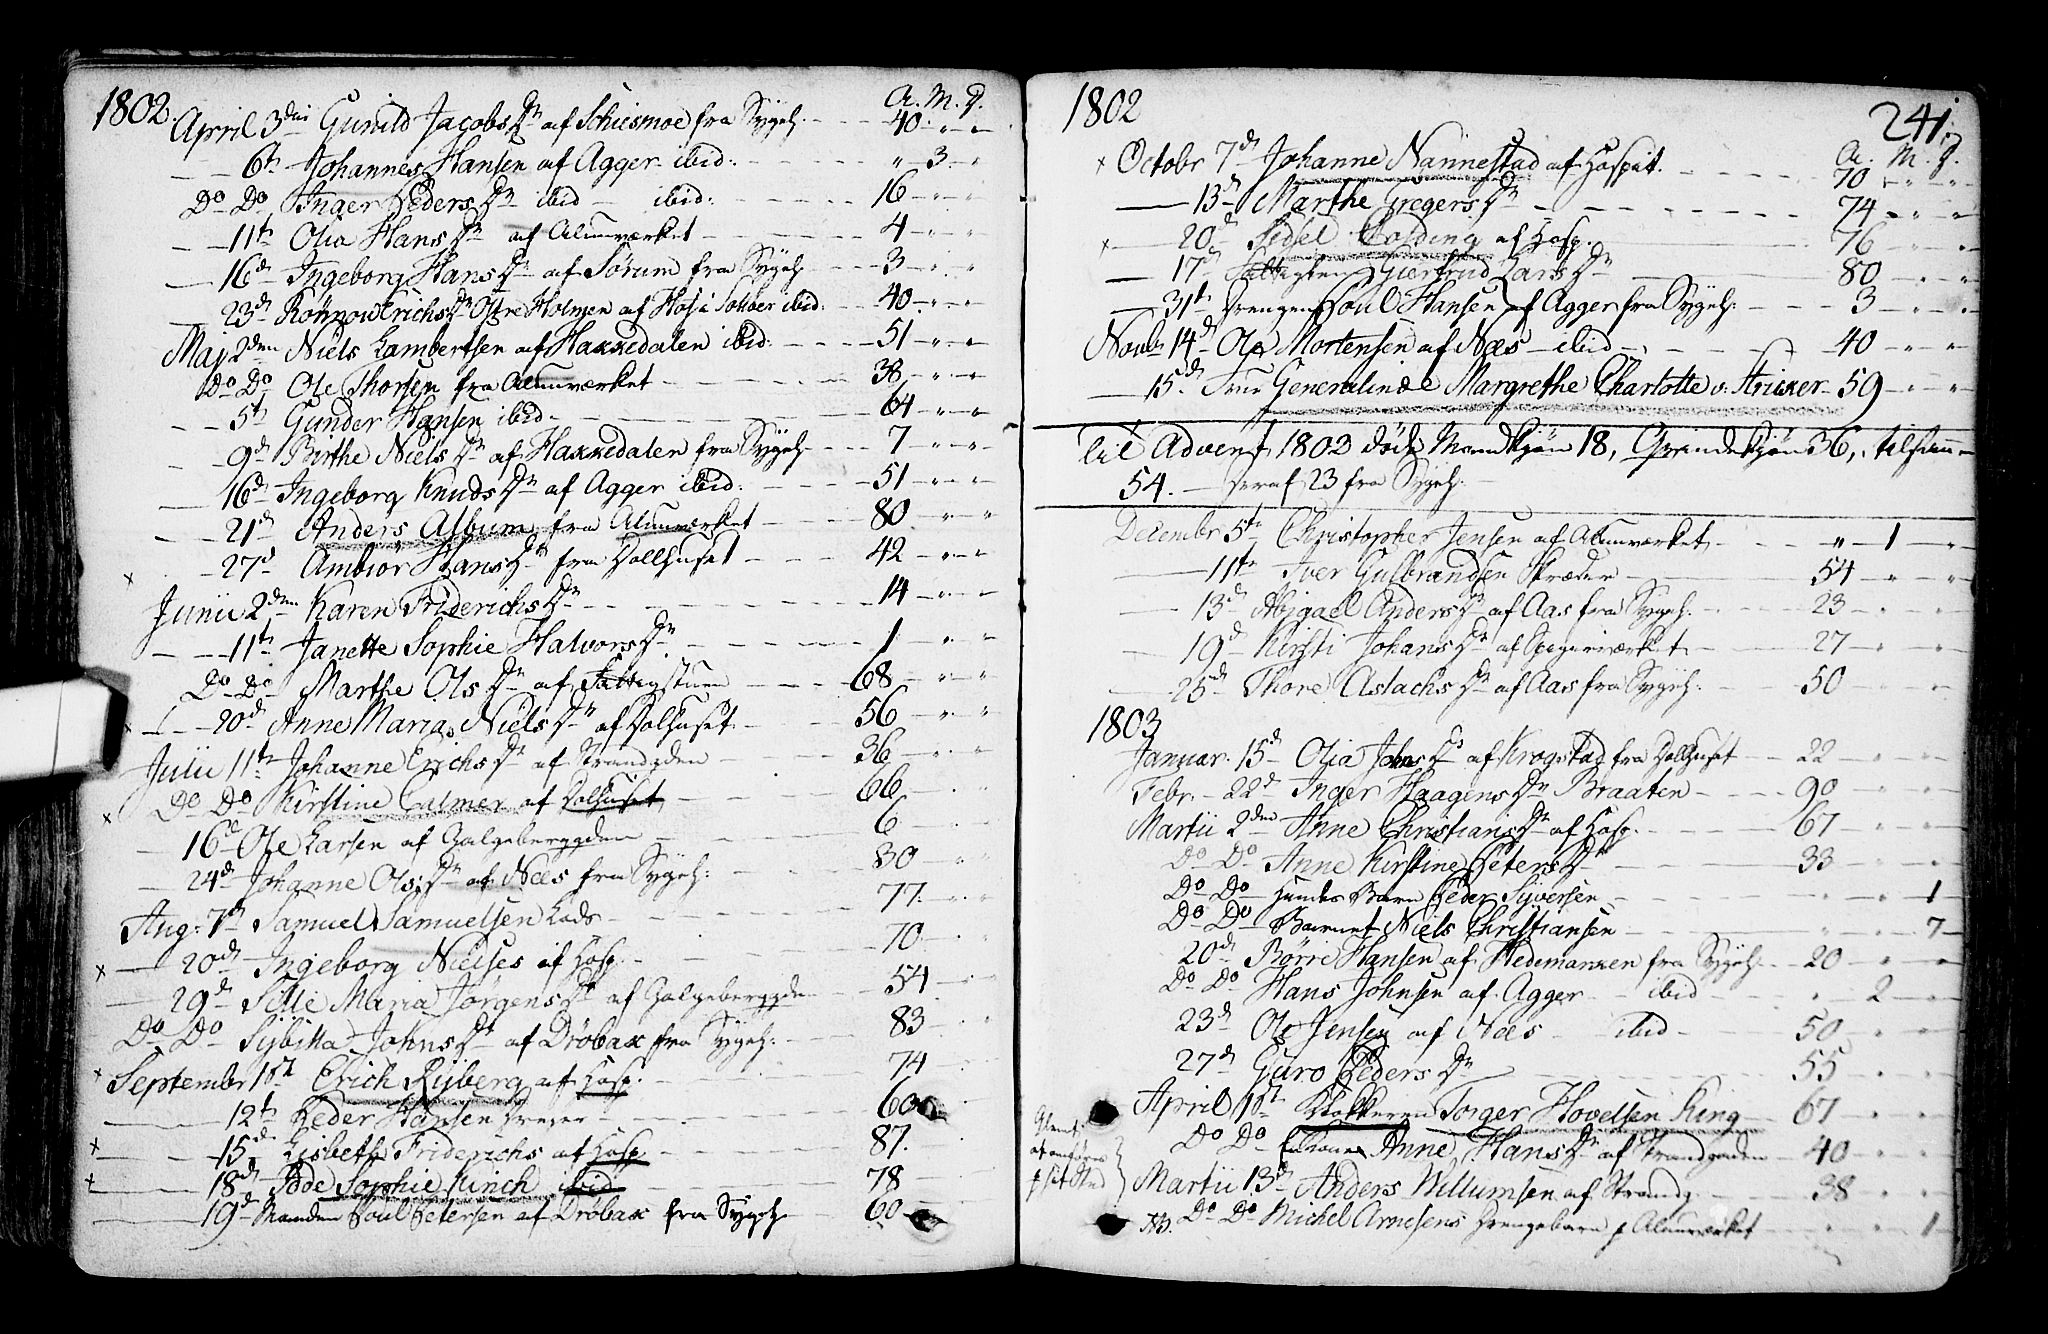 1802. A. M. D.
April 3die Gunild Jacobs Dr af Schiesmoe fra Sygeh. 40. " "
6te Johannes Hansen af Agger ibid: " 3. "
Do Do Inger Peders Dr ibid ibid: 16 " "
11te Olia Hans Dr af Alunværket 4 " "
16d Ingeborg Hans Dr af Sørum fra Sygeh. 3 " "
23d Erichs Dr af ibid. 40. " "
Maj 2den Niels Lambertsen af Hakkedalen ibid. 51 " "
Do Do Ole Thorsen fra Alunværket 38 " "
5te Gunder Hansen ibid 64 " "
9d Birthe Niels Dr af Hakkedalen fra Sygeh. 7 " "
16d Ingeborg Knuds Dr af Agger ibid. 51 " "
21d Anders Album fra Alunværket 80 " "
x 27d Ambiør Hans Dr fra Dolhuset 42 " "
Junii 2den Karen Friderichs Dr 14 " "
11te Janette Sophie Halvors Dr 1 " "
Do Do Marthe Ols Dr af Fattigstuen 68 " "
x 20d Anne Maria Niels Dr af Dolhuset 56 " "
Julii 11te Johanne Erichs Dr af Strandgden 36 " "
x Do Do Kirstine Calmer af Dolhuset 66 " "
16d Ole Larsen af Galgeberggden 6 " "
24d Johanne Ols Dr af Næs fra Sygeh: 30 " "
Aug: 7d Samuel Samuelsen Lods 77. " "
x 20d Ingeborg Nielses af Hosp. 70 " "
29d Sille Maria Jørgens Dr af Galgeberggden 54 " "
Do Do Sijbilla Johns Dr af Drøbak fra Sygeh: 83 " "
x Septembr 1ste Erich Rijberg af Hosp. 74 " "
12te Peder Hansen 60
x 15d Lisbeth Friderichs af Hosp 87.
x 18d Sophie Kinch ibid 78
19d Manden Poul Petersen af Drøbak fra Sygeh 60
1802 241.
A. M. D.
x Octobr 7d Johanne Nannestad af Hospit. 70 " "
13d Marthe Gregers Dr 74 " "
x 20d Sidsel Colding af Hosp. 76 "
17d Giertrud Lars Dr 80 " "
31te Drengen Poul Hansen af Agger fra Sygeh: 3 " "
Novbr 14d Ole Mortensen af Næs ibid 40 " "
15d Frue Generalinde Margrethe Charlotte v: Stricker 59 " "
Til Advent 1802 døde Mandkjøn 18, Qvindekjøn 36, tilsam
54. Deraf 23 fra Sygeh.
Decembr 5te Christopher Jensen af Alunværket " 1 "
11te Iver Gulbrandsen Skræder 54 " "
13d Abigael Anders Dr af Aas fra Sygeh. 23 " "
19d Kirsti Johans Dr af Spigerværket 27 " "
25d Thore Aslachs Dr af Aas fra Sygeh. 50 " "
1803
Januar. 15d Olia Johns Dr af Krogstad fra Dolhuset 22 " "
Febr. 22d Inger Haagens Dr Braaten 90 " "
Martii 2den Anne Christians Dr af Hosp. 67 " "
Do Do Anne Kirstine Peters Dr 33 " "
Do Do Hendes Barn Peder Sijversen " " 1
Do Do Barnet Niels Christiansen " " 7
20d Børre Hansen af Hedemarken fra Sygeh. 20 " "
Do Do Hans Johnsen af Agger ibid " 2 "
23d Ole Jensen af Næs ibid 50 " "
27d Guro Peders Dr 55 " "
April 1ste Klokkeren Torger Hovelsen Ring 67 " "
Do Do Enkonen Anne Hans Dr af Strandgaden 40 " "
Glemt at anføres
Martii 13d Anders Willumsen af Strandg. 38 " "
NB. Do Do Michel Arnesens Drengebarn f Alunværket " " 1